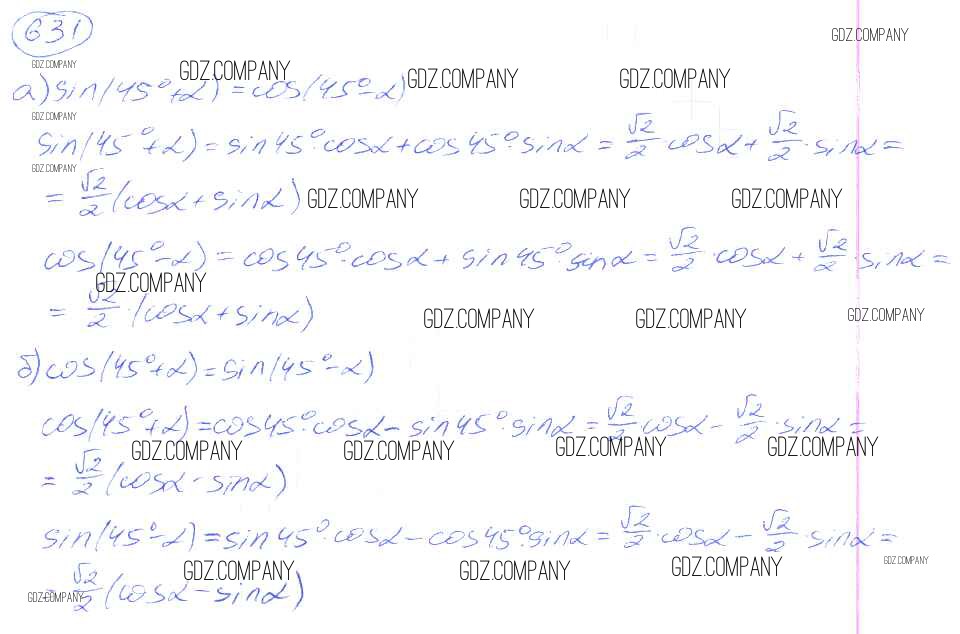 631
GDZ.COMPANY
GDZ.COMPANY GDZ.COMPANY GDZ.COMPANY GDZ.COMPANY
а) sin(45°+α) = cos(45°-α)
GDZ.COMPANY
sin(45°+α) = sin45°·cosα + cos45°·sinα = √2/2·cosα + √2/2·sinα =
GDZ.COMPANY
= √2/2 (cosα + sinα) GDZ.COMPANY GDZ.COMPANY GDZ.COMPANY
cos(45°-α) = cos45°·cosα + sin45°·sinα = √2/2·cosα + √2/2·sinα =
GDZ.COMPANY
= √2/2·(cosα + sinα) GDZ.COMPANY GDZ.COMPANY GDZ.COMPANY
б) cos(45°+α) = sin(45°-α)
cos(45°+α) = cos45°·cosα - sin45°·sinα = √2/2 cosα - √2/2·sinα =
GDZ.COMPANY GDZ.COMPANY GDZ.COMPANY GDZ.COMPANY
= √2/2 (cosα - sinα)
sin(45°-α) = sin45°·cosα - cos45°·sinα = √2/2·cosα - √2/2·sinα =
GDZ.COMPANY GDZ.COMPANY GDZ.COMPANY GDZ.COMPANY
= √2/2 (cosα - sinα)
GDZ.COMPANY